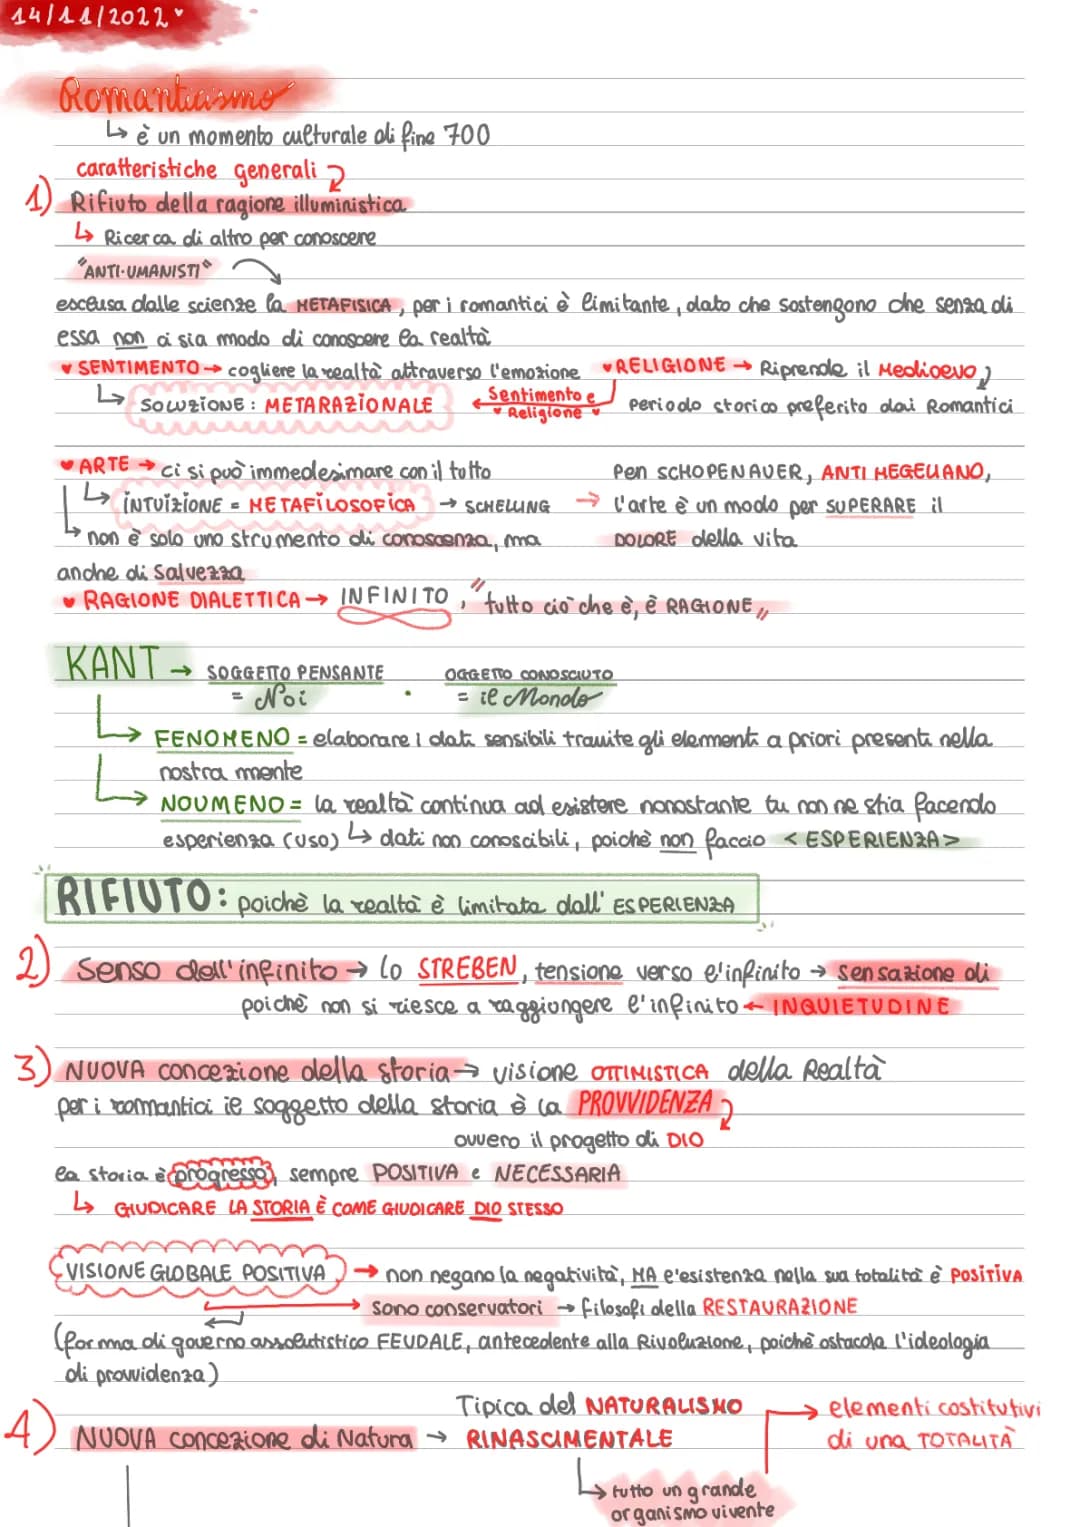 14/11/2022
Romanticismo
↳ è un momento culturale di fine 700
caratteristiche generali
1) Rifiuto della ragione illuministica
↳ Ricerca di altro per conoscere
"ANTI-UMANISTI"
esclusa dalle scienze la METAFISICA, per i romantici è limitante, dato che sostengono che senza di
essa non ci sia modo di conoscere la realtà
♥ SENTIMENTO → cogliere la realtà attraverso l'emozione ♥ RELIGIONE → Riprende il Medioevo,
↳ SOLUZIONE: METARAZIONALE ← Sentimento e Religione ♥ Periodo storico preferito dai Romantici
♥ ARTE → ci si può immedesimare con il tutto
↳ INTUIZIONE = METAFILOSOFICA → SCHELLING
↳ non è solo uno strumento di conoscenza, ma
anche di Salvezza
Per SCHOPENAUER, ANTI HEGELIANO,
→ l'arte è un modo per SUPERARE il
DOLORE della vita
♥ RAGIONE DIALETTICA → INFINITO, "tutto ciò che è, è RAGIONE"
KANT → SOGGETTO PENSANTE · OGGETTO CONOSCIUTO
= Noi = il Mondo
↳ FENOMENO = elaborare i dati sensibili tramite gli elementi a priori presenti nella
nostra mente
↳ NOUMENO = la realtà continua ad esistere nonostante tu non ne stia facendo
esperienza (uso) ↳ dati non conoscibili, poichè non faccio <ESPERIENZA>
RIFIUTO: poichè la realtà è limitata dall'ESPERIENZA
2) Senso dell'infinito → lo STREBEN, tensione verso l'infinito → sensazione di
poichè non si riesce a raggiungere l'infinito ← INQUIETUDINE
3) NUOVA concezione della storia → visione OTTIMISTICA della Realtà
per i romantici il soggetto della storia è la PROVVIDENZA
ovvero il progetto di DIO
la storia è progresso, sempre POSITIVA e NECESSARIA
↳ GIUDICARE LA STORIA È COME GIUDICARE DIO STESSO
VISIONE GLOBALE POSITIVA → non negano la negatività, MA l'esistenza nella sua totalità è POSITIVA
→ sono conservatori → filosofi della RESTAURAZIONE
(forma di governo assolutistico FEUDALE, antecedente alla Rivoluzione, poichè ostacola l'ideologia
di provvidenza)
4) NUOVA concezione di Natura → Tipica del NATURALISMO
RINASCIMENTALE
↳ tutto un grande
organismo vivente
→ elementi costitutivi
di una TOTALITÀ